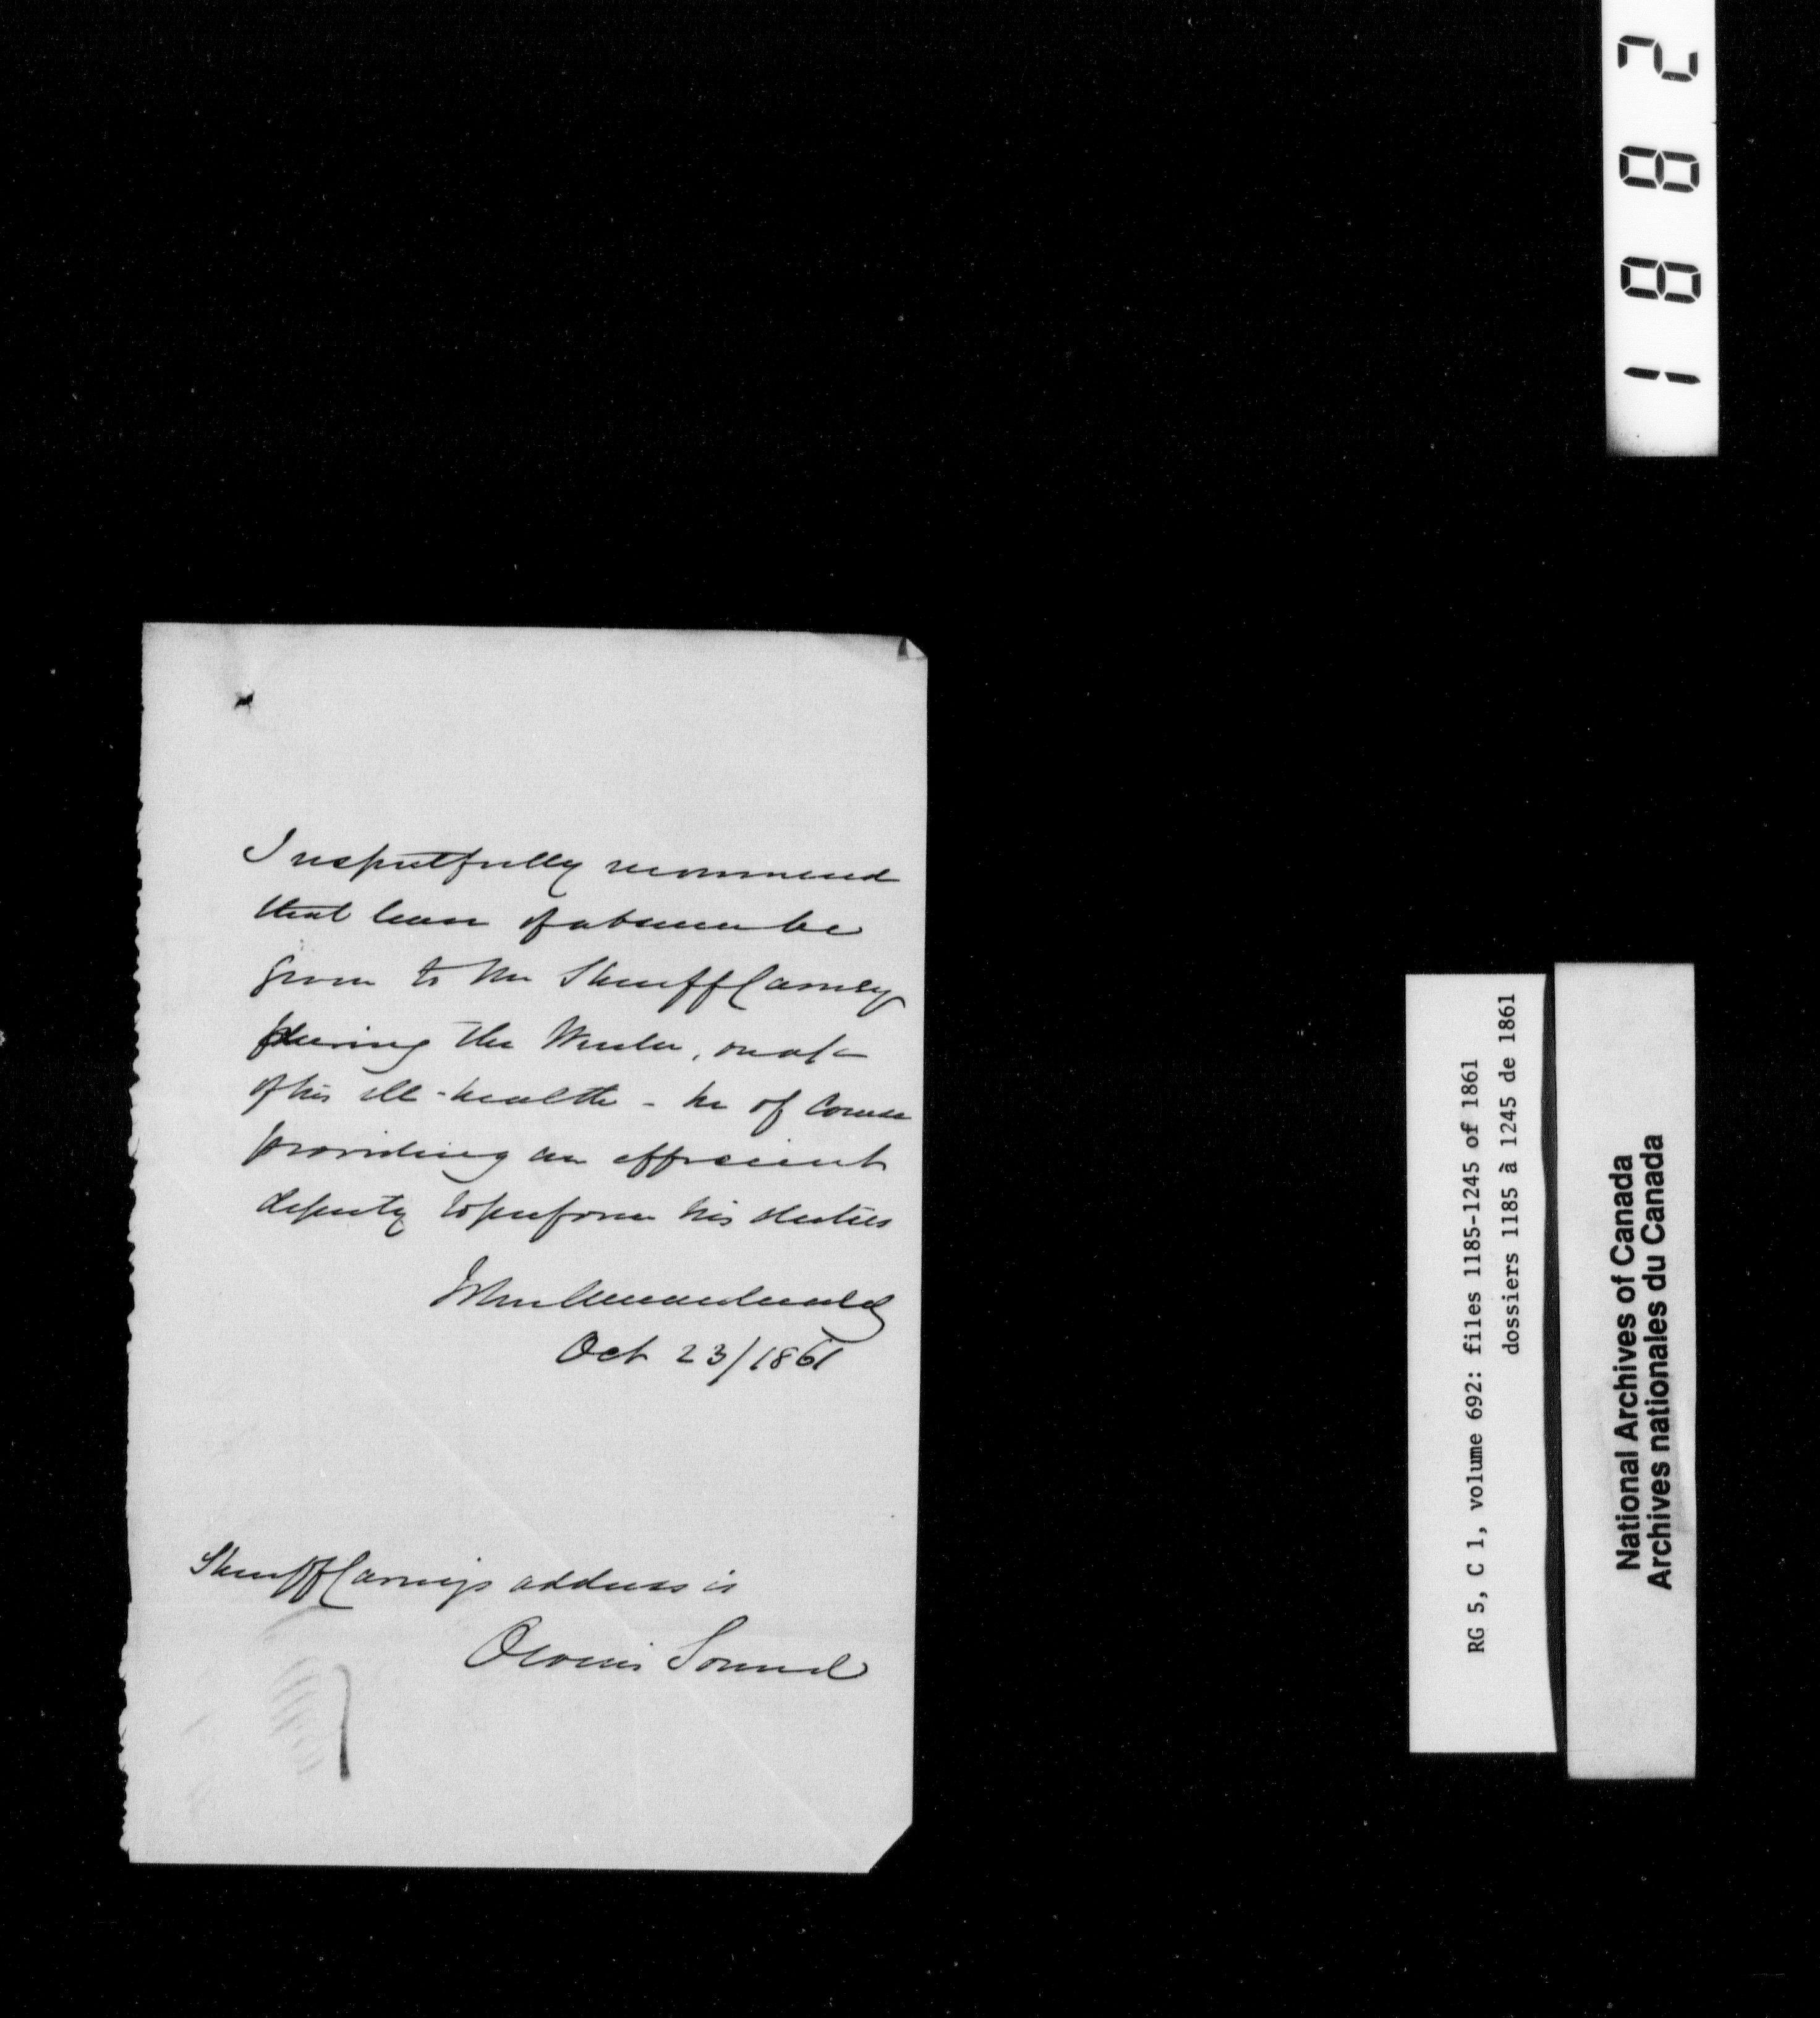 I respectfully recommend
that leave of absence be
given to Mr Sheriff Carney
during the Winter, on a/c
of his ill-health - he of course
providing an efficient
deputy to perform his duties
John A Macdonald
Oct 23/1861
Sheriff Carney's address is
Owen's Sound
1882
RG 5, C 1, volume 692: files 1185-1245 of 1861
dossiers 1185 à 1245 de 1861
National Archives of Canada
Archives nationales du Canada